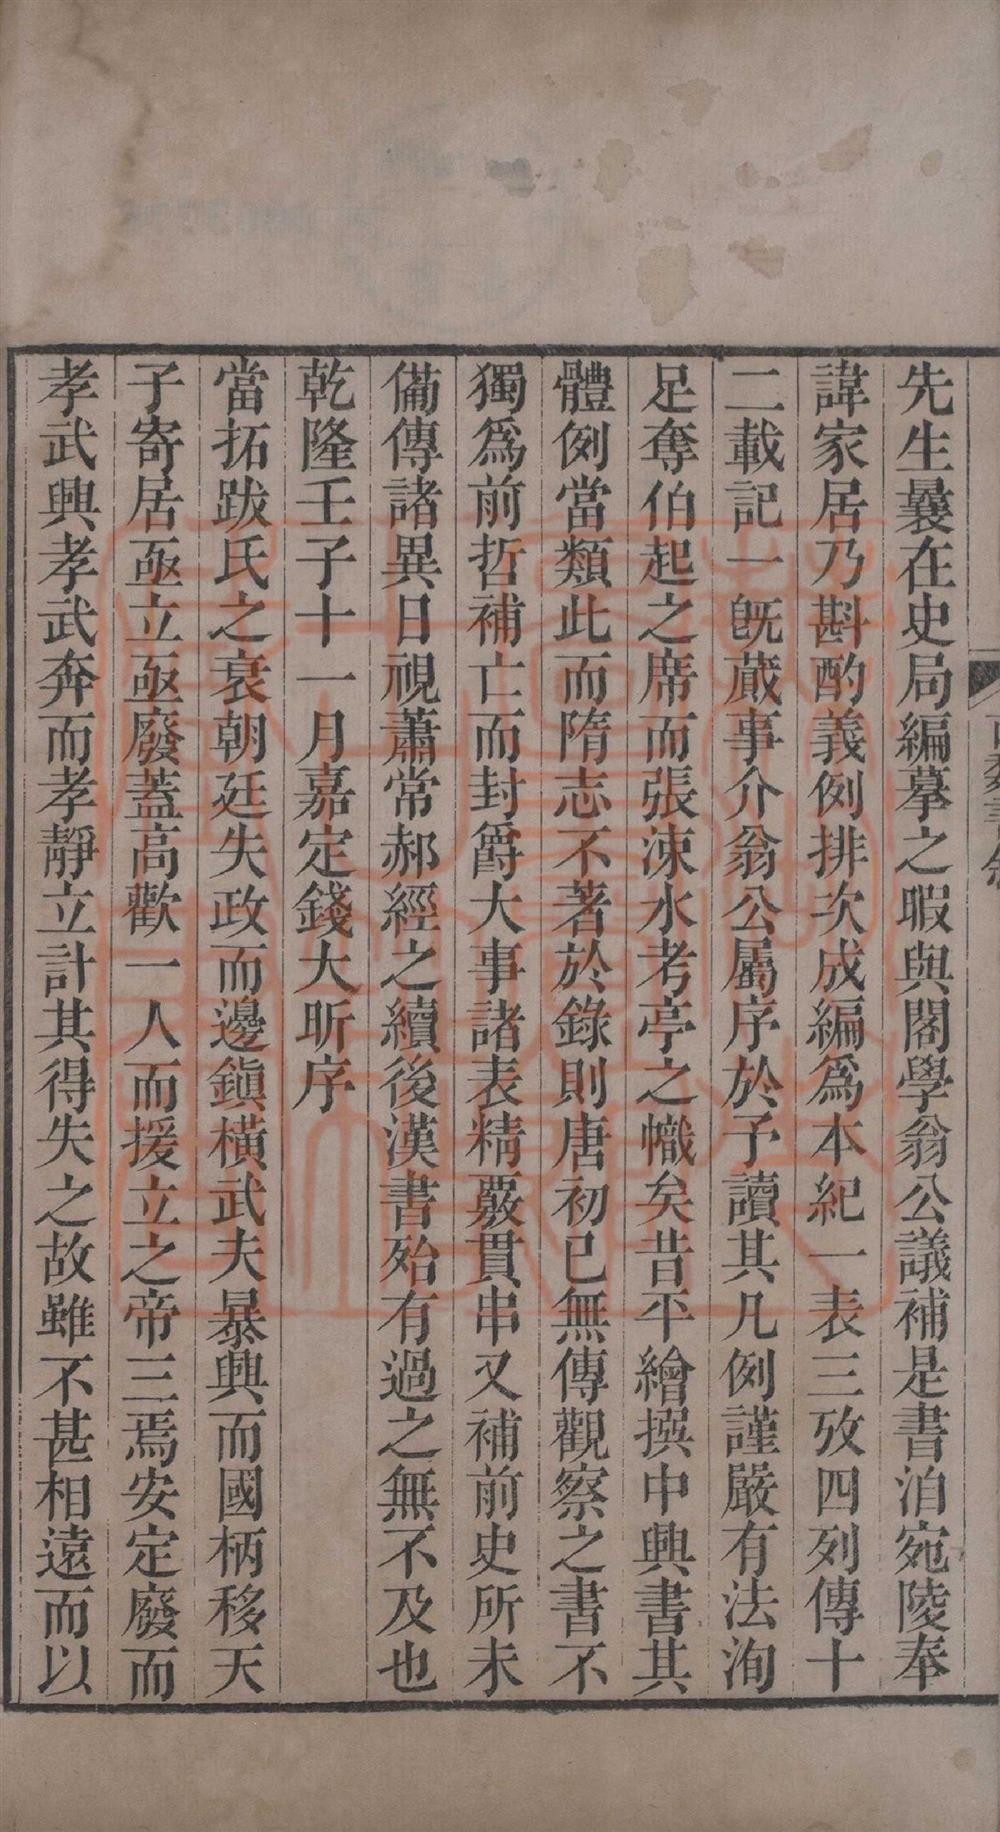 先生曩在史局編摹之暇與閣學翁公議補是書洎宛陵奉
諱家居乃斟酌義例排次成編爲本紀一表三攷四列傳十
二載記一旣蕆事介翁公屬序於予讀其凡例謹嚴有法洵
足奪伯起之席而張涑水考亭之幟矣昔平繪撰中興書其
體例當類此而隋志不著於錄則唐初已無傳觀察之書不
獨爲前哲補亡而封爵大事諸表精覈貫串又補前史所未
備傳諸異日視蕭常郝經之續後漢書殆有過之無不及也
乾隆壬子十一月嘉定錢大昕序
當拓跋氏之衰朝廷失政而邊鎭橫武夫暴興而國柄移天
子寄居亟立亟廢蓋高歡一人而援立之帝三焉安定廢而
孝武興孝武奔而孝靜立計其得失之故雖不甚相遠而以